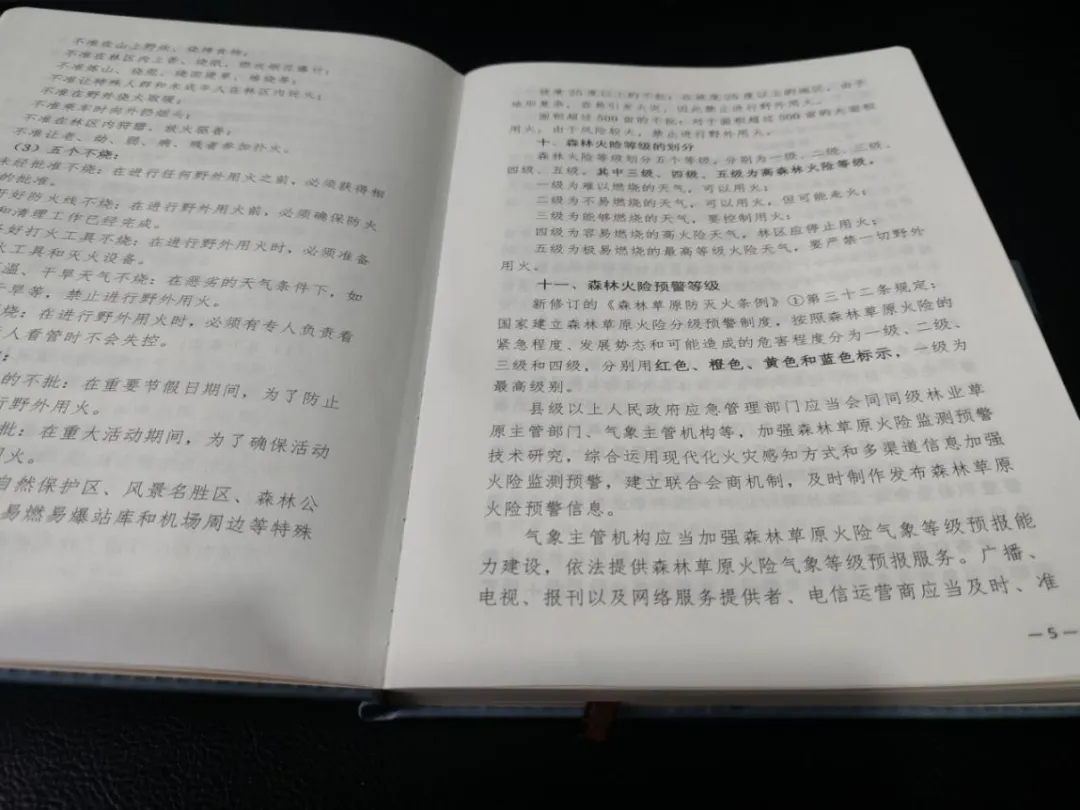 不准在山上野炊、烧烤食物;
不准在林区内上香、烧纸、燃放烟花爆竹;
不准炼山、烧荒、烧田埂草、堆烧等;
不准让特殊人群和未成年人在林区内玩火;
不准在野外烧火取暖;
不准乘车时向外扔烟头;
不准在林区内狩猎、放火驱兽;
不准让老、幼、弱、病、残者参加扑火。
(3)五个不烧:
未经批准不烧:在进行任何野外用火之前,必须获得相
的批准。
开好防火线不烧:在进行野外用火前,必须确保防火
和清理工作已经完成。
好打火工具不烧:在进行野外用火时,必须准备
火工具和灭火设备。
温、干旱天气不烧:在恶劣的天气条件下,如
干旱等,禁止进行野外用火。
烧:在进行野外用火时,必须有专人负责看
人看管时不会失控。
的不批:在重要节假日期间,为了防止
行野外用火。
批:在重大活动期间,为了确保活动
用火。
自然保护区、风景名胜区、森林公
易燃易爆站库和机场周边等特殊
坡度25度以上的不批:在坡度25度以上的地区,由于
地形复杂,容易引发火灾,因此禁止进行野外用火。
面积超过500亩的不批:对于面积超过500亩的大面积
用火,由于风险较大,禁止进行野外用火。
十、森林火险等级的划分
森林火险等级划分五个等级,分别为一级、二级、三级、
四级、五级。其中三级、四级、五级为高森林火险等级。
一级为难以燃烧的天气,可以用火;
二级为不易燃烧的天气,可以用火,但可能走火;
三级为能够燃烧的天气,要控制用火;
四级为容易燃烧的高火险天气,林区应停止用火;
五级为极易燃烧的最高等级火险天气,要严禁一切野外
用火。
十一、森林火险预警等级
新修订的《森林草原防灭火条例》①第三十二条规定:
国家建立森林草原火险分级预警制度,按照森林火险的
紧急程度、发展势态和可能造成的危害程度分为一级、二级、
三级和四级,分别用红色、橙色、黄色和蓝色标示,一级为
最高级别。
县级以上人民政府应急管理部门应当会同同级林业草
原主管部门、气象主管机构等,加强森林草原火险监测预警
技术研究,综合运用现代化火灾感知方式和多渠道信息加强
火险监测预警,建立联合会商机制,及时制作发布森林草原
火险预警信息。
气象主管机构应当加强森林草原火险气象等级预报能
力建设,依法提供森林草原火险气象等级预报服务。广播、
电视、报刊以及网络服务提供者、电信运营商应当及时、准
—5—